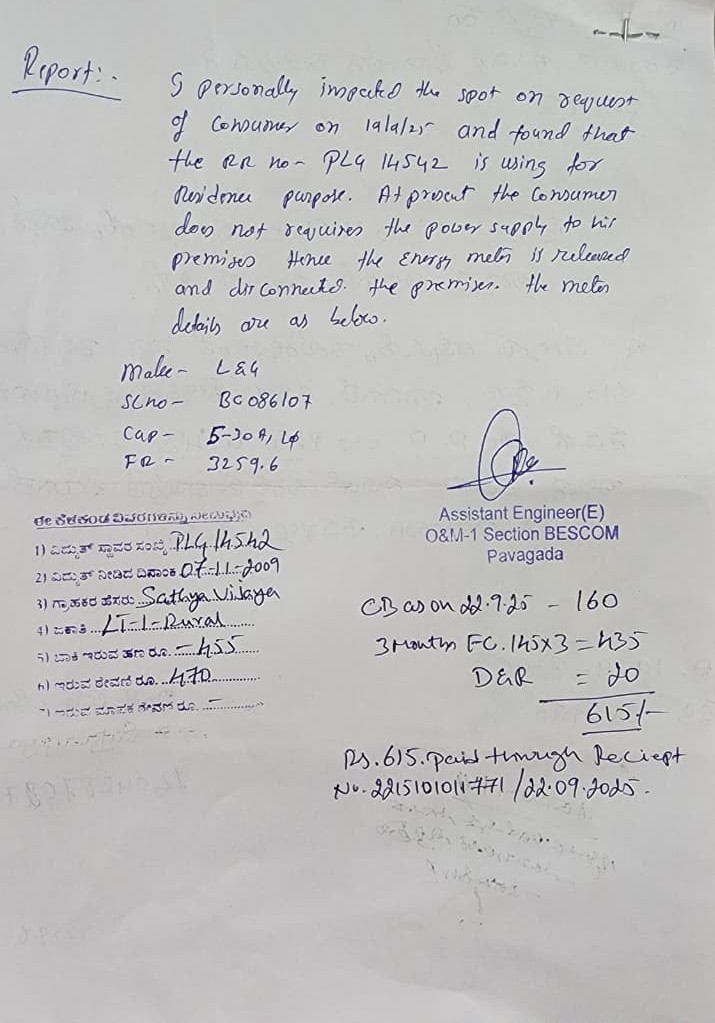 Report:-
I personally inspected the spot on request
of Consumer on 19/9/25 and found that
the RR no- PLG 14542 is using for
Residence purpose. At present the Consumer
does not requires the power supply to his
premises Hence the Energy meter is released
and disconnected. the premises. the meter
details are as below.
Make - L&G
SLno - BC086107
Cap - 5-30A, 1ϕ
FR - 3259.6
Assistant Engineer(E)
O&M-1 Section BESCOM
Pavagada
ಈ ಕೆಳಕಂಡ ವಿವರಗಳನ್ನು ನೀಡುವುದು
1) ವಿದ್ಯುತ್ ಸ್ಥಾವರ ಸಂಖ್ಯೆ PLG 14542
2) ವಿದ್ಯುತ್ ನೀಡಿದ ದಿನಾಂಕ 07-11-2009
3) ಗ್ರಾಹಕರ ಹೆಸರು Sathya Vijaya
4) ಜಕಾತಿ LT-1-Rural
5) ಬಾಕಿ ಇರುವ ಹಣ ರೂ. -455
6) ಇರುವ ಠೇವಣಿ ರೂ. 470
7) ಇರುವ ಮಾಪಕ ಠೇವಣಿ ರೂ. -
CB as on 22.9.25 - 160
3 Months FC. 145x3 = 435
D&R = 20
615/-
Rs. 615. paid through Reciept
No. 2215101011771 /22.09.2025.